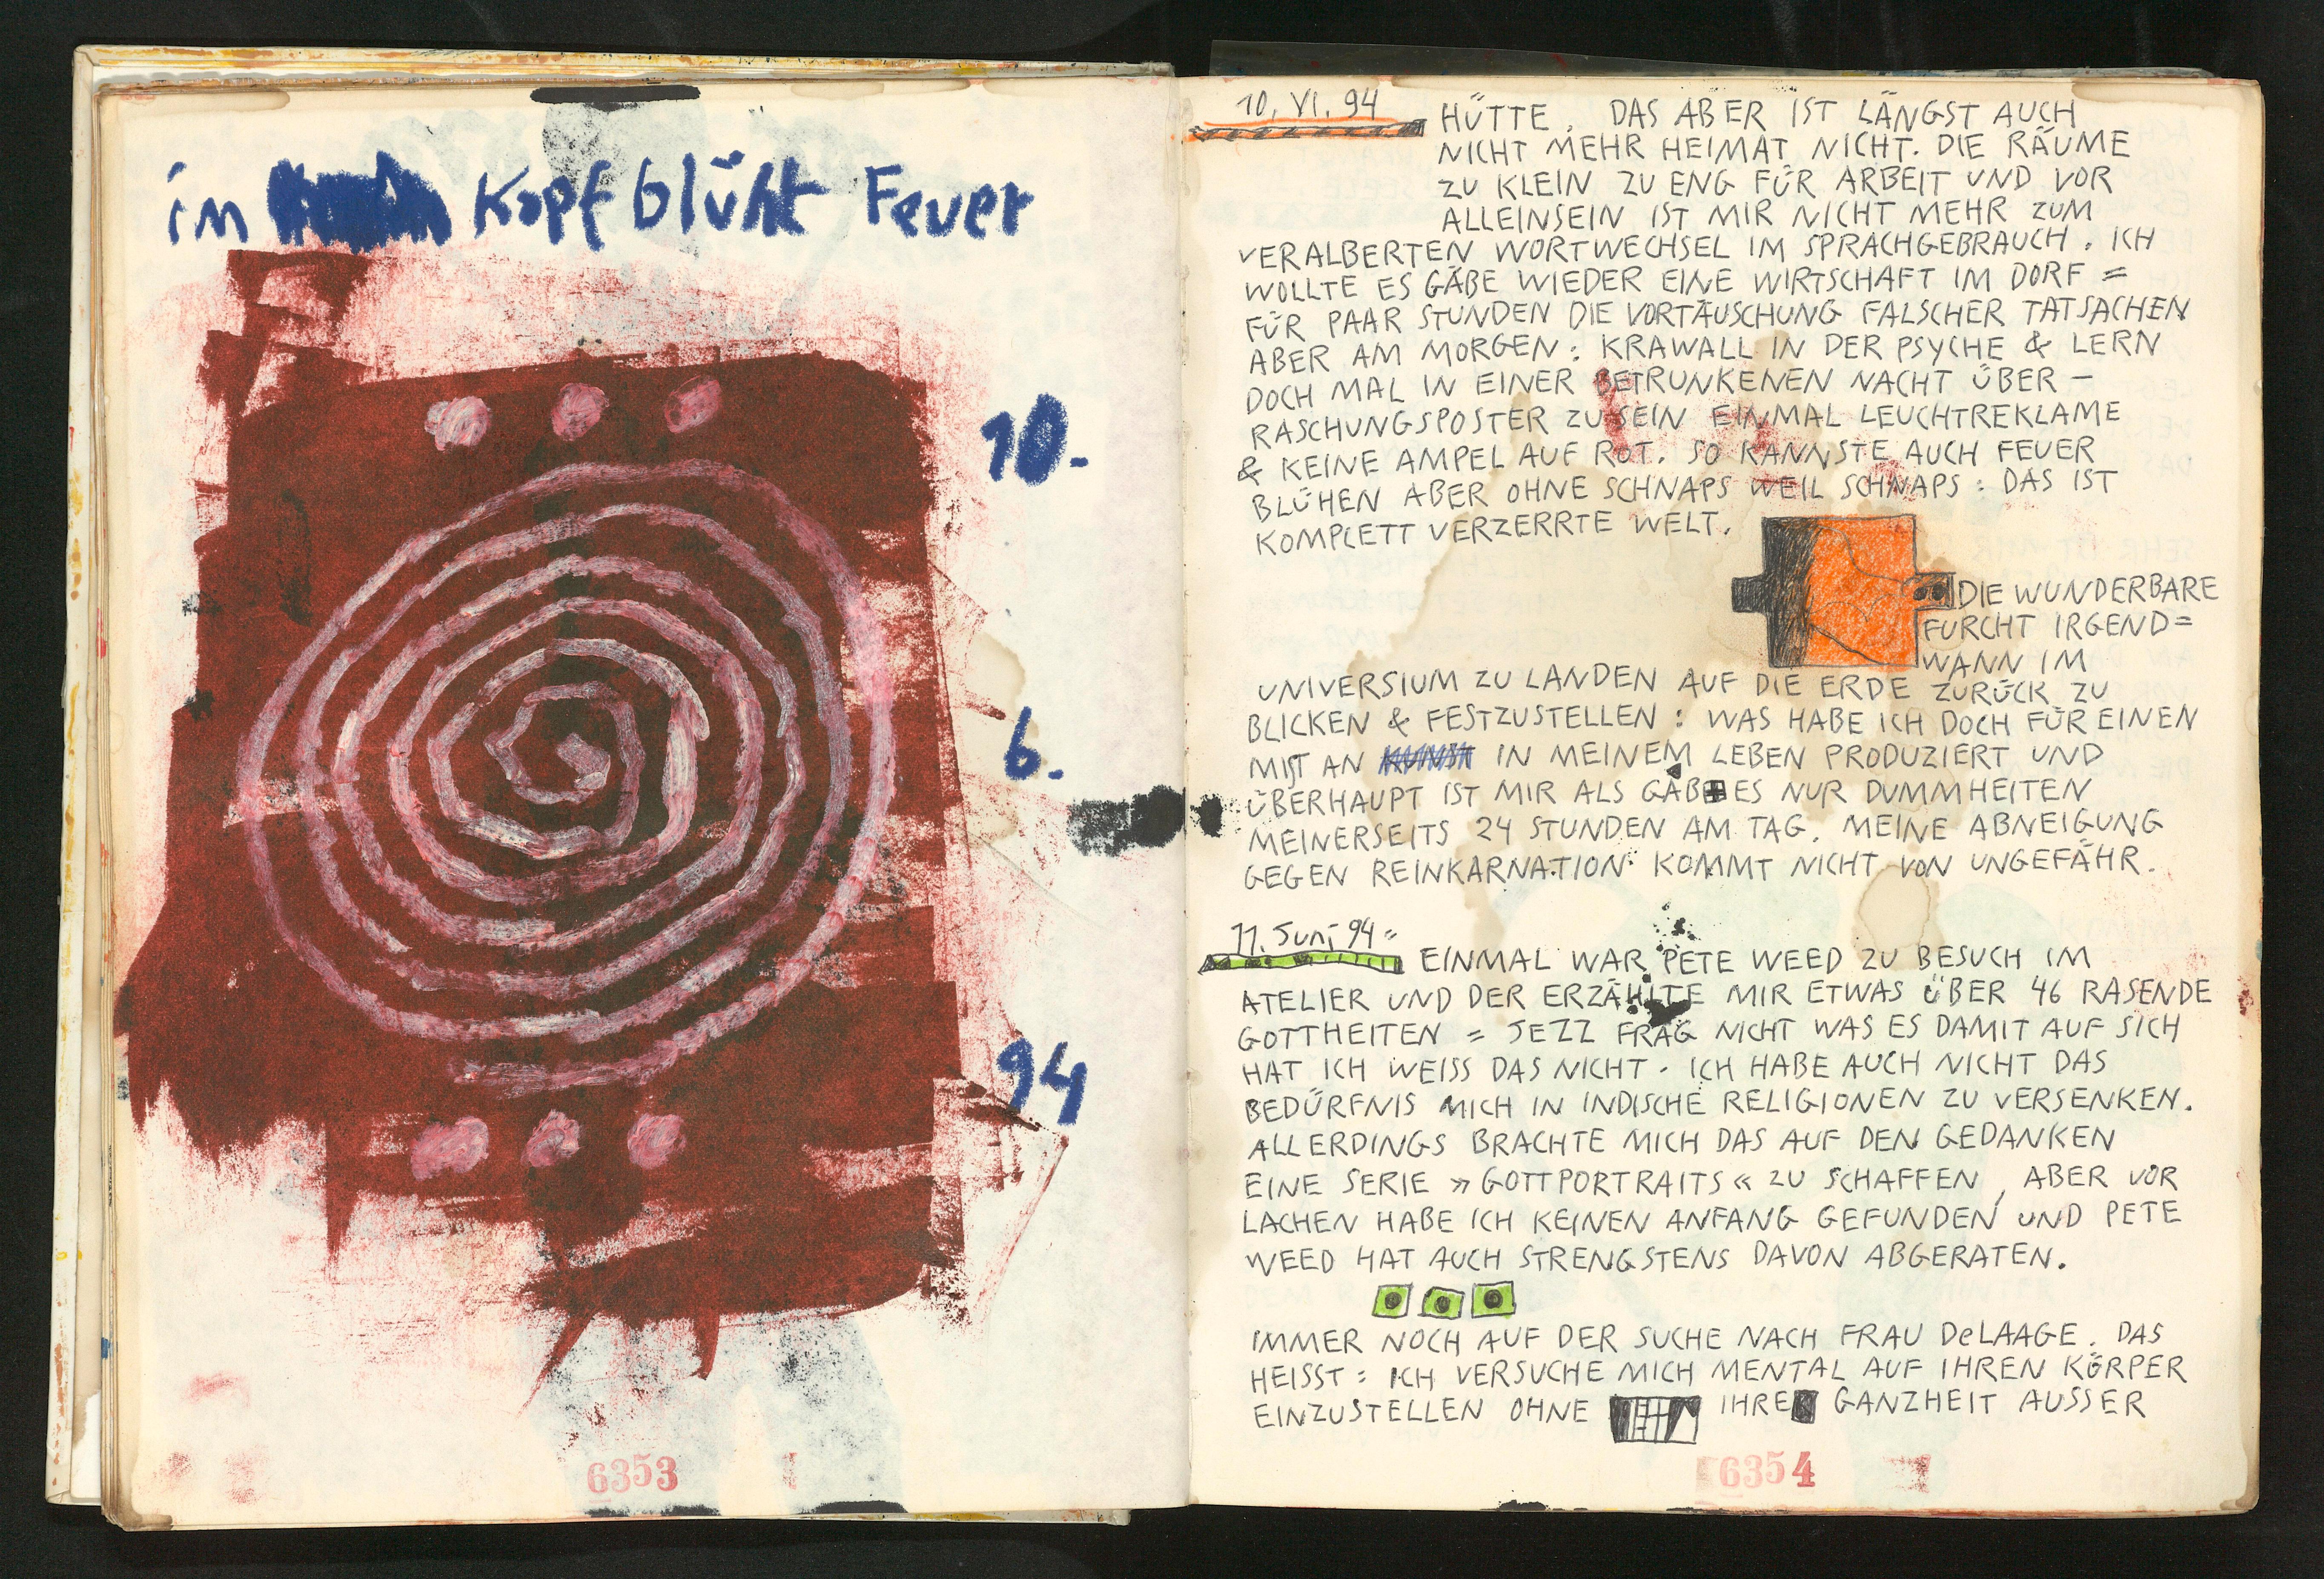 im Kopf blüht Feuer
10.
6.
94
6353
10. VI. 94
HÜTTE. DAS ABER IST LÄNGST AUCH
NICHT MEHR HEIMAT NICHT. DIE RÄUME
ZU KLEIN ZU ENG FÜR ARBEIT UND VOR
ALLEINSEIN IST MIR NICHT MEHR ZUM
VERALBERTEN WORTWECHSEL IM SPRACHGEBRAUCH. ICH
WOLLTE ES GÄBE WIEDER EINE WIRTSCHAFT IM DORF =
FÜR PAAR STUNDEN DIE VORTÄUSCHUNG FALSCHER TATSACHEN
ABER AM MORGEN: KRAWALL IN DER PSYCHE & LERN
DOCH MAL IN EINER BETRUNKENEN NACHT ÜBER-
RASCHUNGSPOSTER ZU SEIN EINMAL LEUCHTREKLAME
& KEINE AMPEL AUF ROT. SO KANNSTE AUCH FEUER
BLÜHEN ABER OHNE SCHNAPS WEIL SCHNAPS: DAS IST
KOMPLETT VERZERRTE WELT.
DIE WUNDERBARE
FURCHT IRGEND=
WANN IM
UNIVERSIUM ZU LANDEN AUF DIE ERDE ZURÜCK ZU
BLICKEN & FESTZUSTELLEN: WAS HABE ICH DOCH FÜR EINEN
MIST AN IN MEINEM LEBEN PRODUZIERT UND
ÜBERHAUPT IST MIR ALS GÄB ES NUR DUMMHEITEN
MEINERSEITS 24 STUNDEN AM TAG. MEINE ABNEIGUNG
GEGEN REINKARNATION KOMMT NICHT VON UNGEFÄHR.
11. Juni 94=
EINMAL WAR PETE WEED ZU BESUCH IM
ATELIER UND DER ERZÄHLTE MIR ETWAS ÜBER 46 RASENDE
GOTTHEITEN = JEZZ FRAG NICHT WAS ES DAMIT AUF SICH
HAT ICH WEISS DAS NICHT. ICH HABE AUCH NICHT DAS
BEDÜRFNIS MICH IN INDISCHE RELIGIONEN ZU VERSENKEN.
ALLERDINGS BRACHTE MICH DAS AUF DEN GEDANKEN
EINE SERIE »GOTTPORTRAITS« ZU SCHAFFEN, ABER VOR
LACHEN HABE ICH KEINEN ANFANG GEFUNDEN UND PETE
WEED HAT AUCH STRENGSTENS DAVON ABGERATEN.
IMMER NOCH AUF DER SUCHE NACH FRAU DeLAAGE. DAS
HEISST: ICH VERSUCHE MICH MENTAL AUF IHREN KÖRPER
EINZUSTELLEN OHNE IHRER GANZHEIT AUSSER
6354